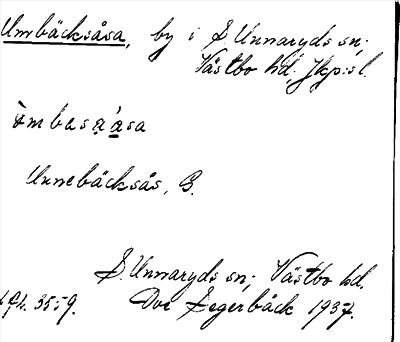 Umbäcksåsa, by i S. Unnaryds sn;
Västbo hd, Jkp:s l.
Umnebäcksås, B.
S. Unnaryds sn; Västbo hd.
35:9. Ove Segerbäck 1937.